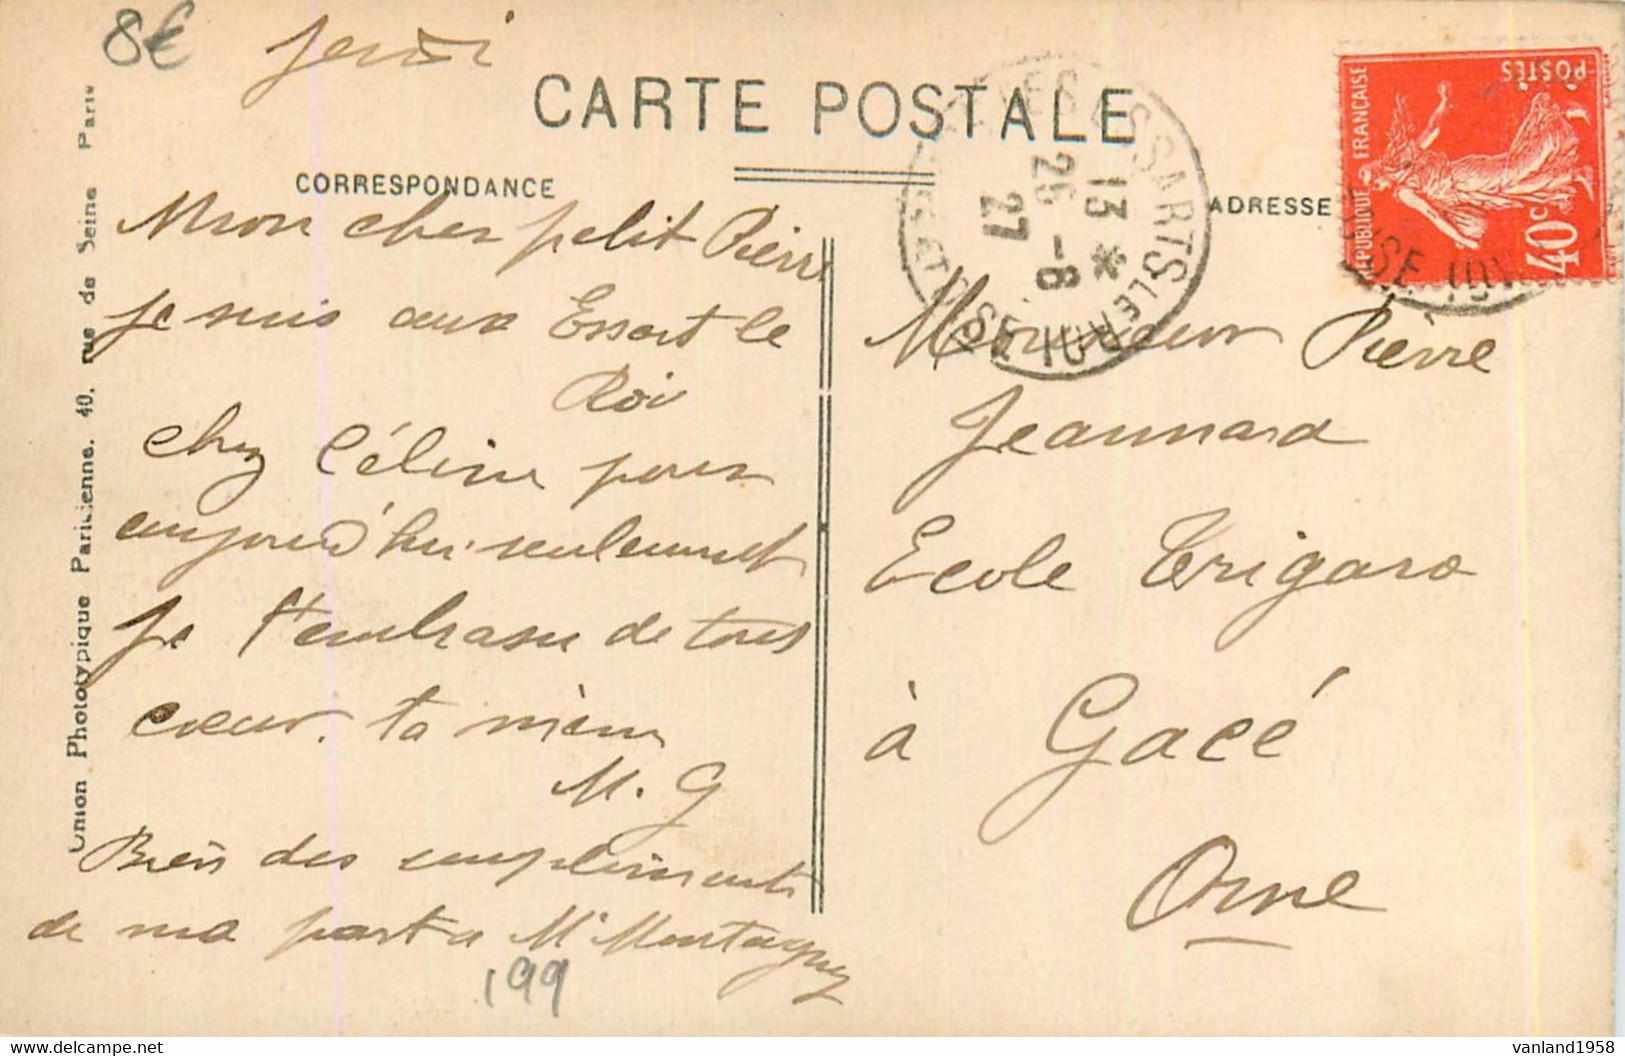 8€
Jeudi
CARTE POSTALE
CORRESPONDANCE
ADRESSE
Mon cher petit Pierre
je suis aux Essart le
Roi
chez Céline pour
aujourd'hui seulement
Je t'embrasse de tout
cœur. ta mère
M. G
Bien des compliments
de ma part a Mr Montaguy
199
Union Phototypique Parisienne. 40, rue de Seine Paris
LES ESSARTS LE ROI
SEINE ET OISE
13 *
26 - 8
27
REPUBLIQUE FRANÇAISE
POSTES
40c
OISE
Monsieur Pierre
Jeannard
Ecole Trigaro
à Gacé
Orne
vanland1958